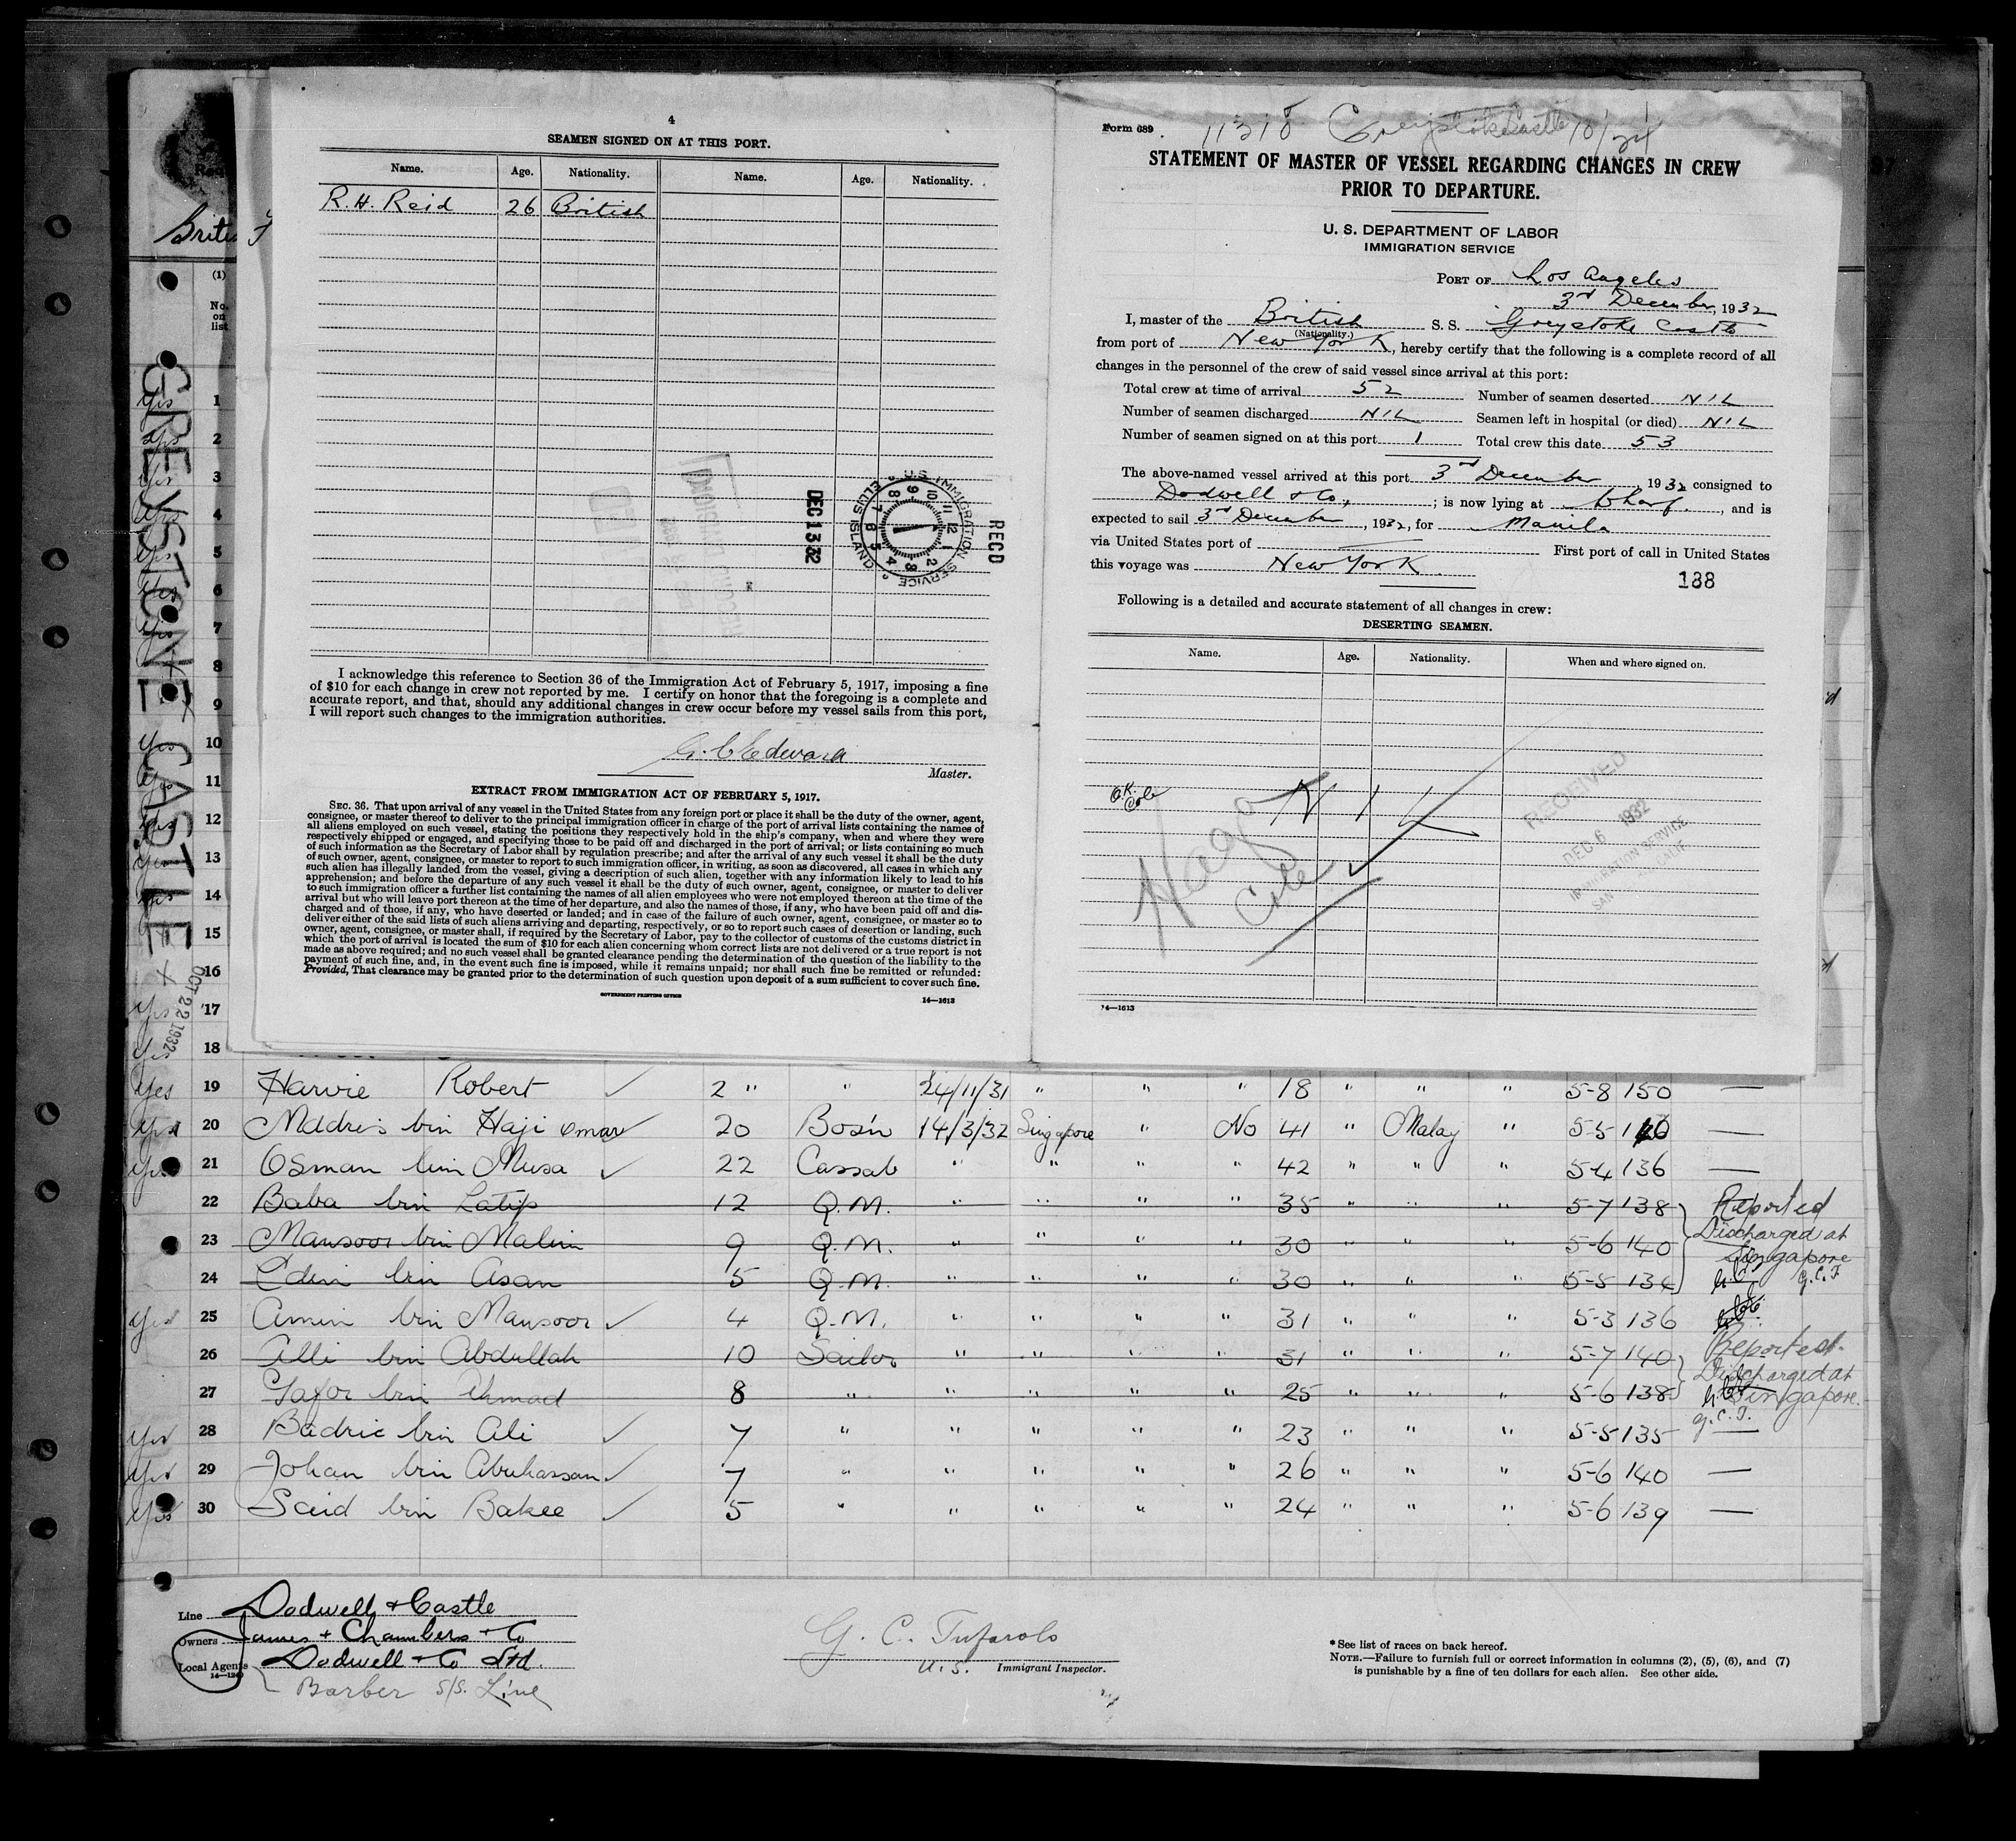 4
SEAMEN SIGNED ON AT THIS PORT.
Name. Age. Nationality. Name. Age. Nationality.
R.H. Reid 26 British
DEC 13 32
U.S. IMMIGRATION SERVICE ELLIS ISLAND
RECD
I acknowledge this reference to Section 36 of the Immigration Act of February 5, 1917, imposing a fine
of $10 for each change in crew not reported by me. I certify on honor that the foregoing is a complete and
accurate report, and that, should any additional changes in crew occur before my vessel sails from this port,
I will report such changes to the immigration authorities.
Master.
EXTRACT FROM IMMIGRATION ACT OF FEBRUARY 5, 1917.
SEC. 36. That upon arrival of any vessel in the United States from any foreign port or place it shall be the duty of the owner, agent,
consignee, or master thereof to deliver to the principal immigration officer in charge of the port of arrival lists containing the names of
all aliens employed on such vessel, stating the positions they respectively hold in the ship's company, when and where they were
respectively shipped or engaged, and specifying those to be paid off and discharged in the port of arrival; or lists containing so much
of such information as the Secretary of Labor shall by regulation prescribe; and after the arrival of any such vessel it shall be the duty
of such owner, agent, consignee, or master to report to such immigration officer, in writing, as soon as discovered, all cases in which any
such alien has illegally landed from the vessel, giving a description of such alien, together with any information likely to lead to his
apprehension; and before the departure of any such vessel it shall be the duty of such owner, agent, consignee, or master to deliver
to such immigration officer a further list containing the names of all alien employees who were not employed thereon at the time of the
arrival but who will leave port thereon at the time of her departure, and also the names of those, if any, who have been paid off and dis-
charged and of those, if any, who have deserted or landed; and in case of the failure of such owner, agent, consignee, or master so to
deliver either of the said lists of such aliens arriving and departing, respectively, or so to report such cases of desertion or landing, such
owner, agent, consignee, or master shall, if required by the Secretary of Labor, pay to the collector of customs of the customs district in
which the port of arrival is located the sum of $10 for each alien concerning whom correct lists are not delivered or a true report is not
made as above required; and no such vessel shall be granted clearance pending the determination of the question of the liability to the
payment of such fine, and, in the event such fine is imposed, while it remains unpaid; nor shall such fine be remitted or refunded:
Provided, That clearance may be granted prior to the determination of such question upon deposit of a sum sufficient to cover such fine.
GOVERNMENT PRINTING OFFICE 14—1613
Form 689
Greystoke Castle 10/24
STATEMENT OF MASTER OF VESSEL REGARDING CHANGES IN CREW
PRIOR TO DEPARTURE.
U. S. DEPARTMENT OF LABOR
IMMIGRATION SERVICE
PORT OF Los Angeles
3rd December, 1932
I, master of the British S. S. Greystoke Castle
(Nationality.)
from port of New York, hereby certify that the following is a complete record of all
changes in the personnel of the crew of said vessel since arrival at this port:
Total crew at time of arrival 52 Number of seamen deserted NIL
Number of seamen discharged NIL Seamen left in hospital (or died) NIL
Number of seamen signed on at this port 1 Total crew this date 53
The above-named vessel arrived at this port 3rd December, 1932 consigned to
Dodwell & Co., ; is now lying at Wharf., and is
expected to sail 3rd December, 1932, for Manila
via United States port of First port of call in United States
this voyage was New York
188
Following is a detailed and accurate statement of all changes in crew:
DESERTING SEAMEN.
Name. Age. Nationality. When and where signed on.
O.K. Cole
NIL
RECEIVED
DEC 6 1932
IMMIGRATION SERVICE
14—1613
(1)
No. on list
GREYSTONE CASTLE
OCT 22 1932
1
2
3
4
5
6
7
8
9
10
11
12
13
14
15
16
17
18
Yes 19 Harvie Robert ✓ 2 " " 24/11/31 " " " 18 " " " 5-8 150 —
Yes 20 Mddris bin Haji Omar ✓ 20 Bos'n 14/3/32 Singapore " No 41 " Malay " 5-5 —
Yes 21 Osman bin Musa ✓ 22 Cassab " " " " 42 " " " 5-4 136 —
22 Baba bin Latip 12 Q.M. " " " " 35 " " " 5-7 138 Reported
23 Mansoor bin Malim 9 Q.M. " " " " 30 " " " 5-6 140 Discharged at
24 Edin bin Asan 5 Q.M. " " " " 30 " " " 5-5 134 Singapore G.C.T.
Yes 25 Amin bin Mansoor ✓ 4 Q.M. " " " " 31 " " " 5-3 136
26 Alli bin Abdullah 10 Sailor " " " " 31 " " " 5-7 140 Reported
27 Gafor bin Ahmad 8 " " " " " 25 " " " 5-6 138 Discharged at Singapore.
Yes 28 Badric bin Ali ✓ 7 " " " " " 23 " " " 5-5 135 G.C.T. —
Yes 29 Johan bin Abuhassan ✓ 7 " " " " " 26 " " " 5-6 140 —
Yes 30 Said bin Bakee ✓ 5 " " " " " 24 " " " 5-6 139 —
Line Dodwell & Castle
Owners James + Chambers + Co
Local Agents Dodwell + Co Ltd.
Barber S/S. Line
G. C. Tufarolo
U.S. Immigrant Inspector.
*See list of races on back hereof.
NOTE.—Failure to furnish full or correct information in columns (2), (5), (6), and (7)
is punishable by a fine of ten dollars for each alien. See other side.